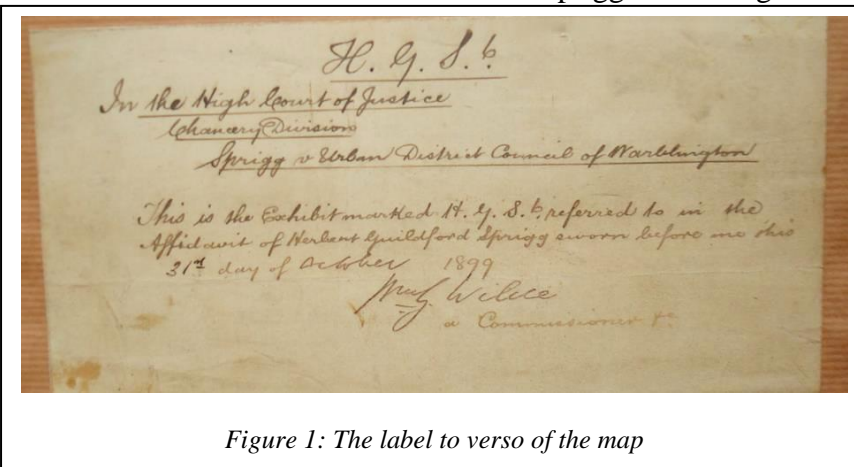 H. G. S. 6
In the High Court of Justice
Chancery Division
Sprigg v Urban District Council of Warblington
This is the Exhibit marked H. G. S. 6. referred to in the
Affidavit of Herbert Guildford Sprigg sworn before me this
31st day of October 1899
Wilkie
a Commissioner &c
Figure 1: The label to verso of the map